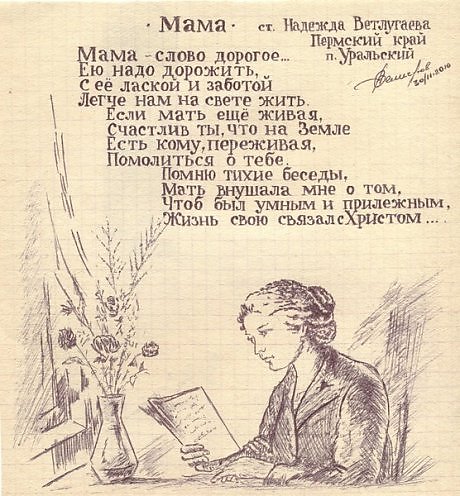 · Мама · ст. Надежда Ветлугаева
Пермский край
п. Уральский
30/11-2010
Мама - слово дорогое...
Ею надо дорожить,
С её лаской и заботой
Легче нам на свете жить.
Если мать ещё живая,
Счастлив ты, что на Земле
Есть кому, переживая,
Помолиться о тебе.
Помню тихие беседы,
Мать внушала мне о том,
Чтоб был умным и прилежным,
Жизнь свою связал с Христом ...